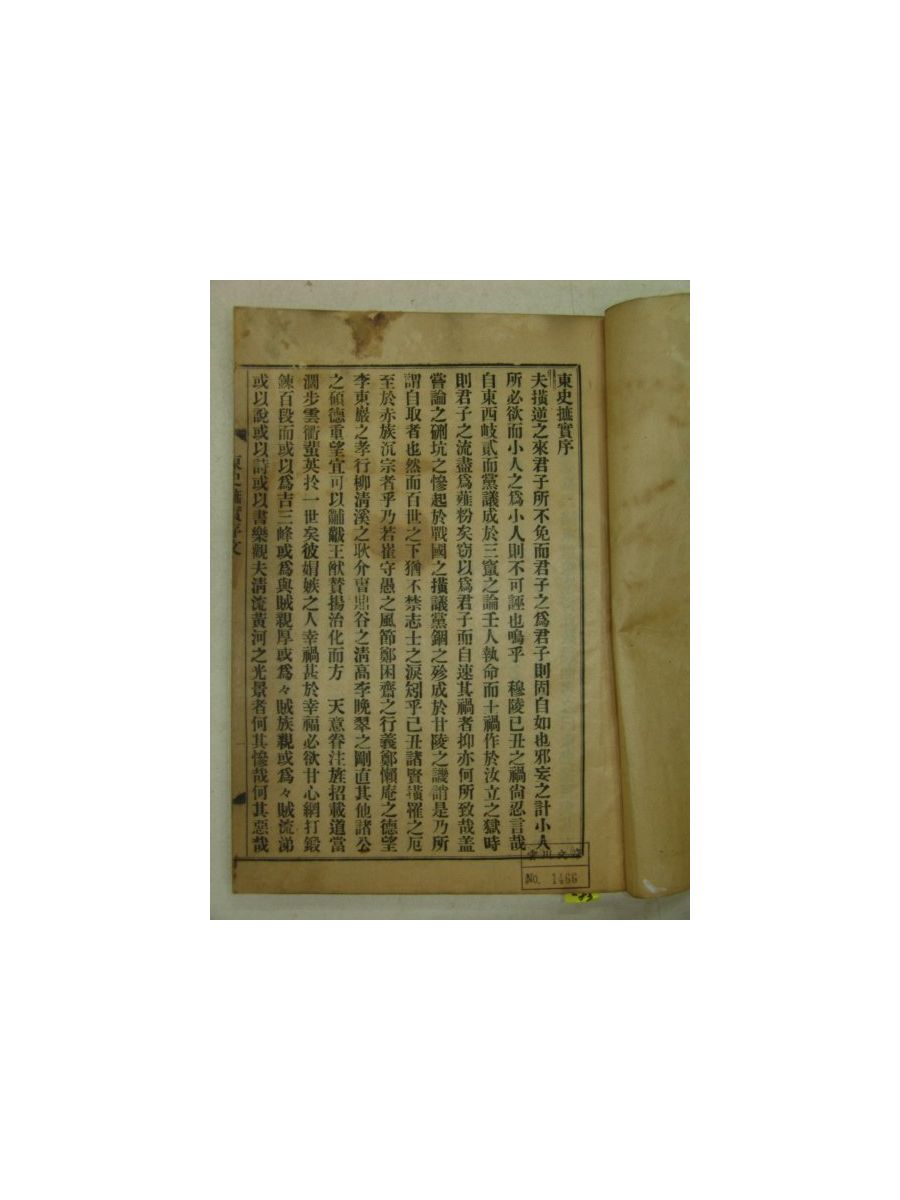 東史摭實序
夫橫逆之來君子所不免而君子之爲君子則固自如也邪妄之計小人
所必欲而小人之爲小人則不可誣也嗚乎 穆陵已丑之禍尙忍言哉
自東西岐貳而黨議成於三竄之論壬人執命而士禍作於汝立之獄時
則君子之流盡爲虀粉矣窃以爲君子而自速其禍者抑亦何所致哉盖
嘗論之硎坑之慘起於戰國之橫議黨錮之殄成於甘陵之譏誚是乃所
謂自取者也然而百世之下猶不禁志士之淚矧乎己丑諸賢橫罹之厄
至於赤族沉宗者乎乃若崔守愚之風節鄭困齋之行義鄭懶庵之德望
李東巖之孝行柳淸溪之耿介曺鼎谷之淸高李晚翠之剛直其他諸公
之碩德重望宜可以黼黻王猷賛揚治化而方 天意眷注旌招載道當
濶步雲衢蜚英扵一世矣彼娼嫉之人幸禍甚於幸福必欲甘心網打鍛
鍊百段而或以爲吉三峰或爲與賊親厚或爲々賊族親或爲々賊流涕
或以說或以詩或以書樂觀夫淸流黃河之光景者何其慘哉何其惡哉
No. 1466